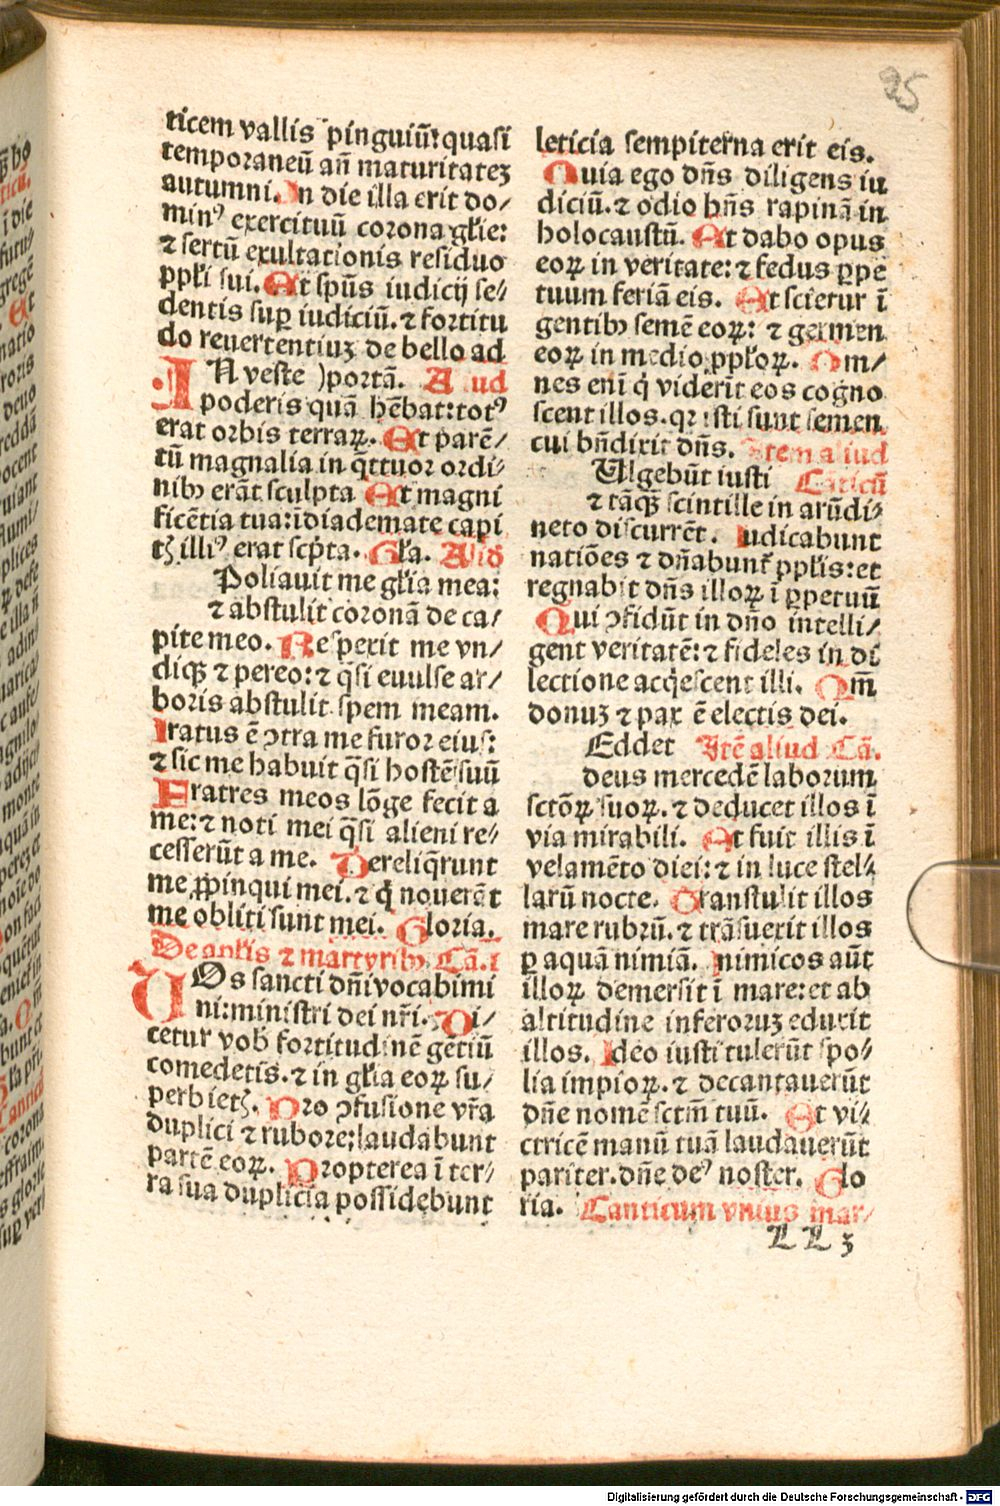 25
ticem vallis pinguiū: quasi
temporaneū añ maturitateꝫ
autumni. In die illa erit do/
minꝰ exercituū corona gl̓ie:
⁊ sertū exultationis residuo
ppl̓i sui. Et spūs iudicij se/
dentis suꝑ iudiciū. ⁊ fortitu
do reuertentiuꝫ de bello ad
IN veste )portā. Aliud
poderis quā hēbat: totꝰ
erat orbis terraꝝ. Et parē/
tū magnalia in q̄ttuor ordi/
nibꝰ erāt sculpta Et magni
ficētia tua: ī diademate capi
tꝭ illiꝰ erat scp̄ta. Gl̓a. Aliđ
Poliauit me gl̓ia mea:
⁊ abstulit coronā de ca/
pite meo. Respexit me vn/
diqꝫ ⁊ pereo: ⁊ q̄si euulse ar/
boris abstulit spem meam.
Iratus ē ↄtra me furor eius:
⁊ sic me habuit q̄si hostē suū
Fratres meos lōge fecit a
me: ⁊ noti mei q̄si alieni re/
cesserūt a me. Dereliq̄runt
me ꝓpinqui mei. ⁊ q̇ nouerāt
me obliti sunt mei. Gloria.
De apl̓is ⁊ martyribꝰ. Cā. I
VOs sancti dñi vocabimi
ni: ministri dei nr̄i. Di/
cetur vob̄ fortitudinē gētiū
comedetis. ⁊ in gl̓ia eoꝝ su/
perbietꝭ. Pro ↄfusione vr̄a
duplici ⁊ rubore; laudabunt
partē eoꝝ. Propterea ī ter/
ra sua duplicia possidebunt
leticia sempiterna erit eis.
Quia ego dn̄s diligens iu
diciū. ⁊ odio hn̄s rapinā in
holocaustū. Et dabo opus
eoꝝ in veritate: ⁊ fedus ꝑpe
tuum feriā eis. Et scietur ī
gentibꝰ semē eoꝝ: ⁊ germen
eoꝝ in medio ppl̓oꝝ. Om/
nes enī q̇ viderīt eos cogno
scent illos. qꝛ isti sunt semen
cui bn̄dixit dn̄s. Item aliud
Ulgebūt iusti Cāticū
⁊ tāqꝫ scintille in arūdi/
neto discurrēt. Iudicabunt
natiōes ⁊ dn̄abunt̄ ppl̓is: et
regnabit dn̄s illoꝝ ī ꝑpetuū
Qui ↄfidūt in dn̄o intelli/
gent veritatē: ⁊ fideles in di
lectione acq̇escent illi. Qm̄
donuꝫ ⁊ pax ē electis dei.
Eddet Itē aliud Cā.
deus mercedē laborum
sctōꝝ suoꝝ. ⁊ deducet illos ī
via mirabili. Et fuit illis ī
velamēto diei: ⁊ in luce stel/
larū nocte. Transtulit illos
mare rubrū. ⁊ trāsuexit illos
ꝑ aquā nimiā. Inimicos aūt
illoꝝ demersit ī mare: et ab
altitudine inferoruꝫ eduxit
illos. Ideo iusti tulerūt spo/
lia impioꝝ. ⁊ decantauerūt
dn̄e nomē sctm̄ tuū. Et vi/
ctricē manū tuā laudauerūt
pariter. dn̄e deꝰ noster. Glo
ria. Canticum vnius mar/
LL 3
Digitalisierung gefördert durch die Deutsche Forschungsgemeinschaft - DFG